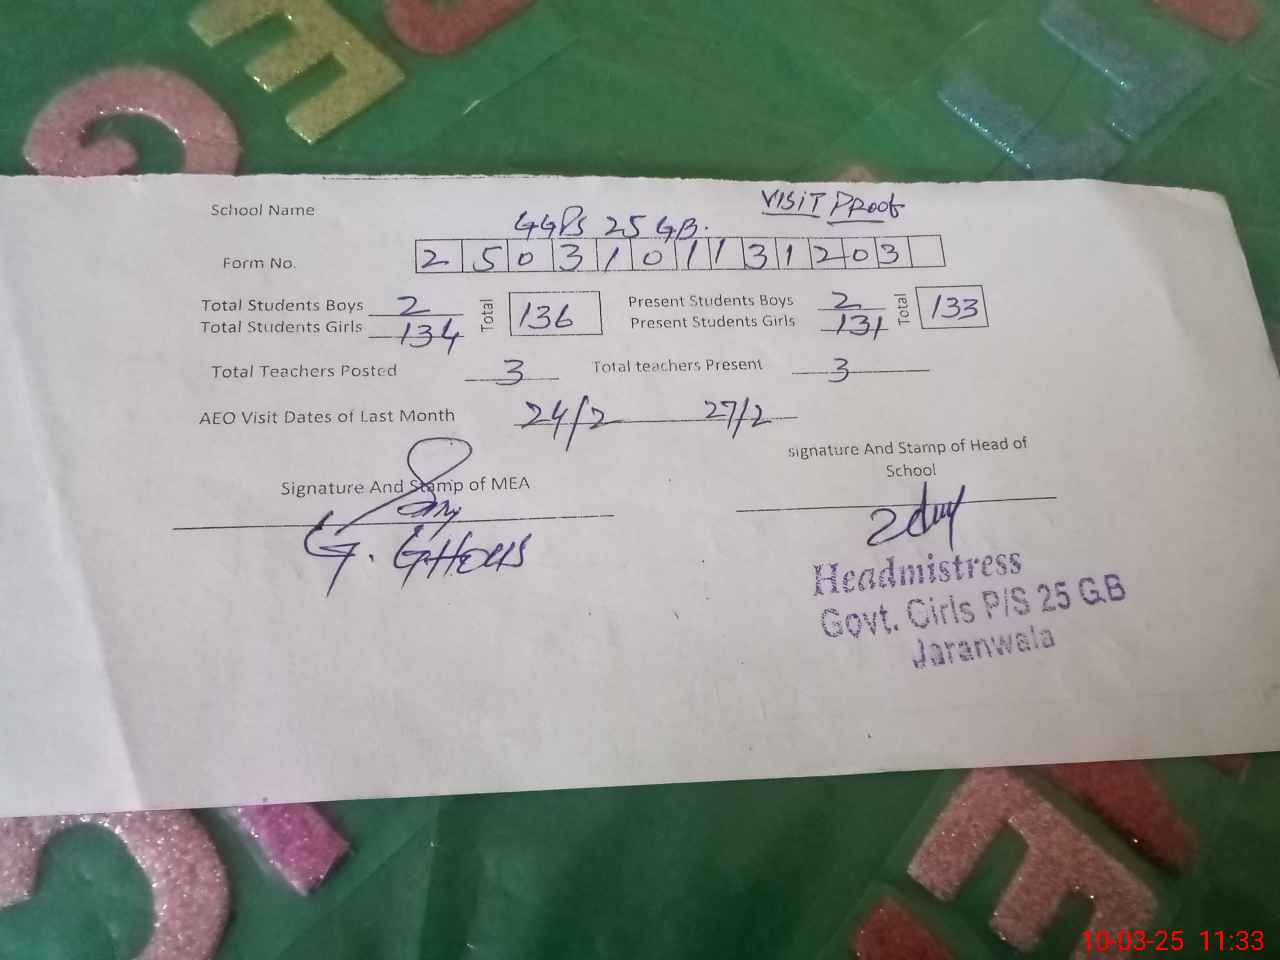 VISIT PROOF
School Name GGPS 25 GB.
Form No. 2 5 0 3 1 0 1 1 3 1 2 0 3
Total Students Boys 2 Total 136 Present Students Boys 2 Total 133
Total Students Girls 134 Present Students Girls 131
Total Teachers Posted 3 Total teachers Present 3
AEO Visit Dates of Last Month 24/2 27/2
signature And Stamp of Head of
School
Signature And Stamp of MEA
G. GHOUS
Headmistress
Govt. Girls P/S 25 G.B
Jaranwala
10-03-25 11:33